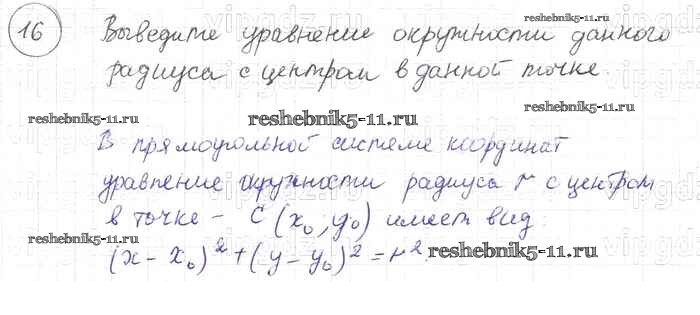 16 Выведите уравнение окружности данного
радиуса с центром в данной точке.
В прямоугольной системе координат
уравнение окружности радиуса r с центром
в точке - C (x₀; y₀) имеет вид:
(x - x₀)² + (y - y₀)² = r²
reshebnik5-11.ru
reshebnik5-11.ru
reshebnik5-11.ru
reshebnik5-11.ru
reshebnik5-11.ru
reshebnik5-11.ru
reshebnik5-11.ru